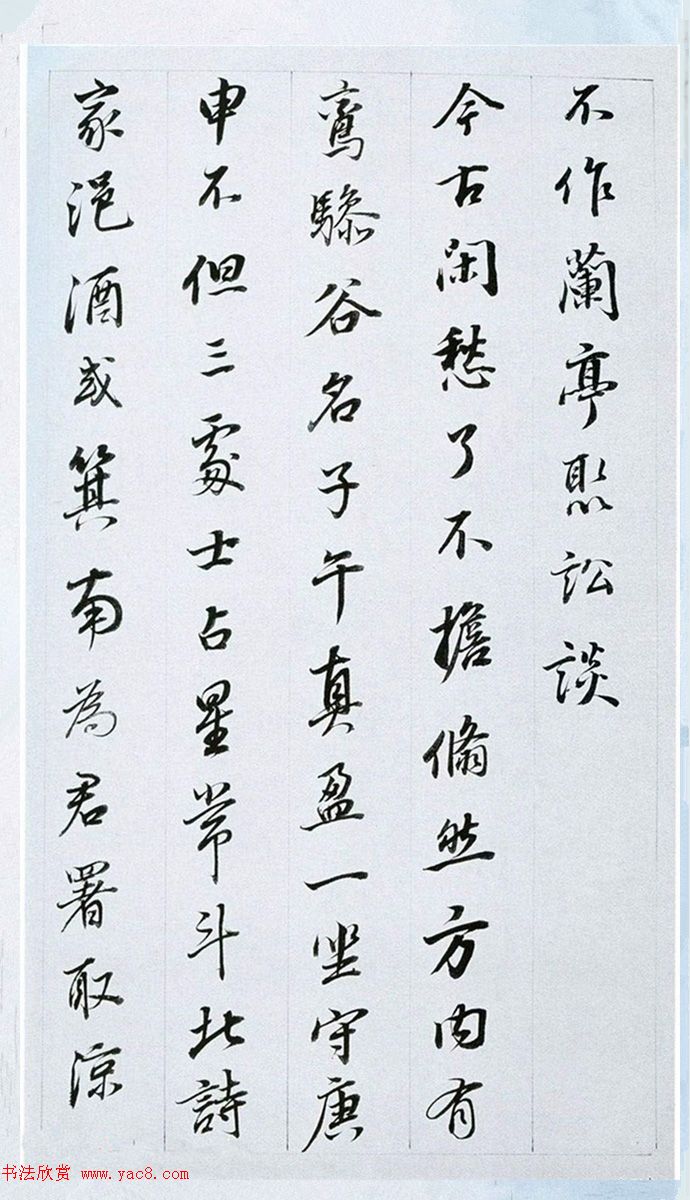 不作蘭亭聚訟談
今古閑愁了不擔翛然方內有
鸞驂谷名子午真盈一坐守庚
申不但三處士占星常斗北詩
家浥酒或箕南為君署取涼
书法欣赏 www.yac8.com